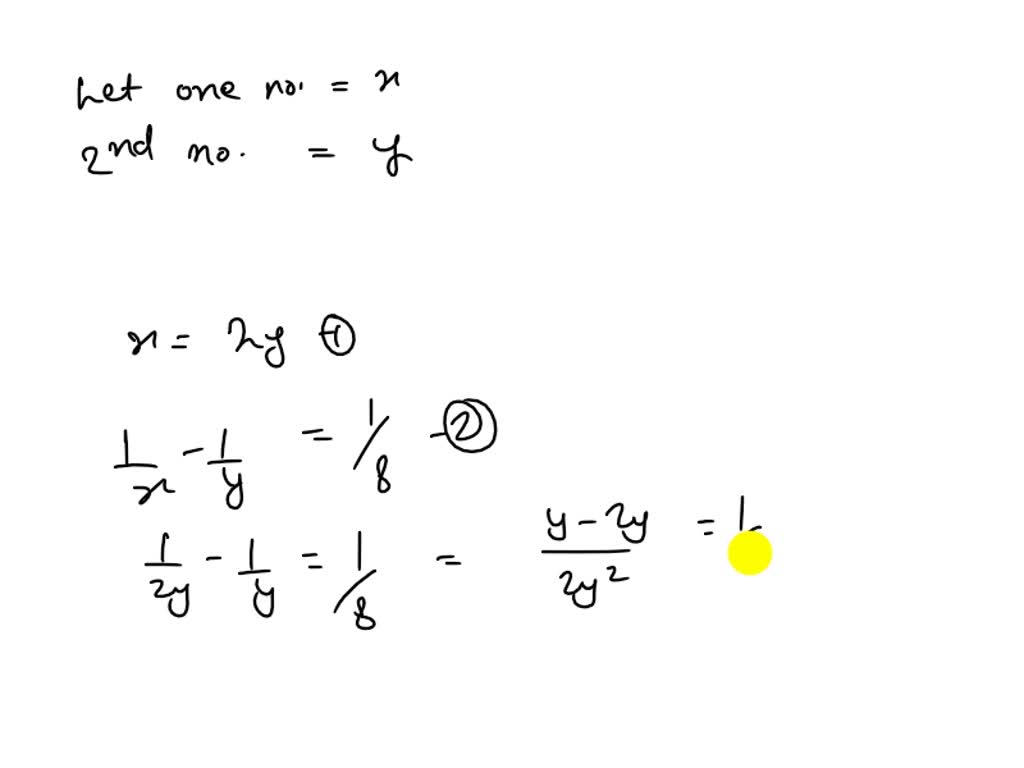 Let one no. = x
2nd no. = y
x = 2y ①
1/x - 1/y = 1/8 - ②
1/2y - 1/y = 1/8 = y - 2y/2y² = 1